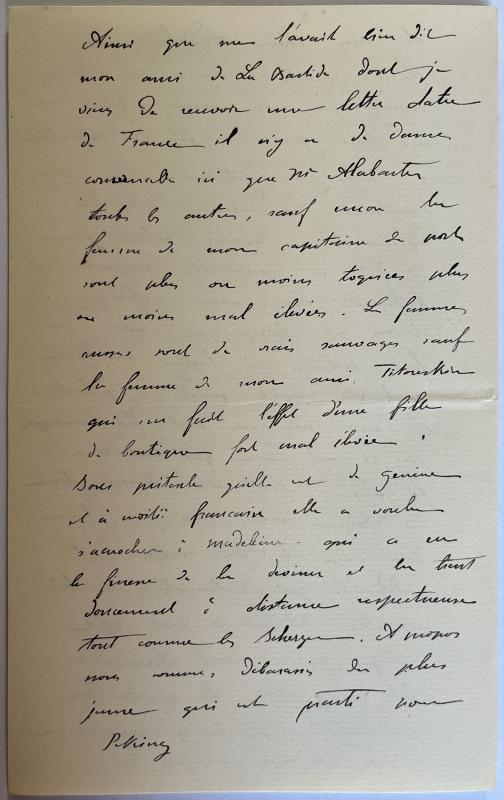 Ainsi que me l'avait bien dit
mon ami de La Bastide dont je
viens de recevoir une lettre datée
de France il n'y a de dame
convenable ici que Me Alabaster
toutes les autres, sauf encore la
femme de mon capitaine de port
sont plus ou moins toquées plus
ou moins mal élevées. Les femmes
russes sont de vrais sauvages sauf
la femme de mon ami
qui me fait l'effet d'une fille
de boutique fort mal élevée.
Sous prétexte qu'elle est de Genève
et à moitié française elle a voulu
s'accrocher à Madeleine qui a eu
la finesse de la deviner et la tient
doucement à distance respectueuse
tout comme les Scherzer. A propos
nous sommes débarassés du plus
jeune qui est parti pour
Peking